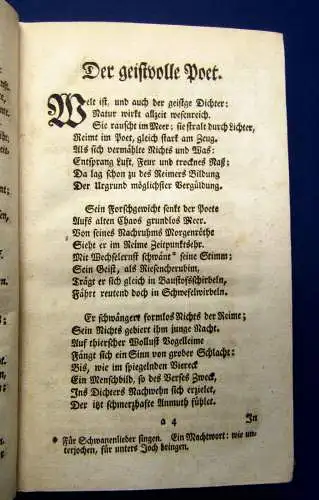 Der geistvolle Poet.
Welt ist, und auch der geistge Dichter:
Natur wirkt allzeit wesenreich.
Sie rauscht im Meer; sie stralt durch Lichter,
Reimt im Poet, gleich stark am Zeug.
Als sich vermählte Nichts und Was:
Entsprang Luft, Feur und trocknes Naß;
Da lag schon zu des Reimers Bildung
Der Urgrund möglichster Vergüldung.
Sein Forschgewicht senkt der Poete
Aufs alten Chaos grundlos Meer.
Von seines Nachruhms Morgenröthe
Sieht er im Reime Zeitpunktsehr.
Mit Wechselernst schwänt* seine Stimm;
Sein Geist, als Riesencherubim,
Trägt er sich gleich in Baustofsschirbeln,
Fährt reutend doch in Schwefelwirbeln.
Er schwängert formlos Nichts der Reime;
Sein Nichts gebiert ihm junge Nacht.
Auf thierscher Wollust Vogelleime
Fängt sich ein Sinn von grober Schlacht:
Bis, wie im spiegelnden Viereck
Ein Menschbild, so des Verses Zweck,
Ins Dichters Nachwehn sich erzielet,
Der itzt schmerzhafte Anmuth fühlet.
a 4 In
* Für Schwanenlieder singen. Ein Machtwort: wie un-
terjochen, für unters Joch bringen.